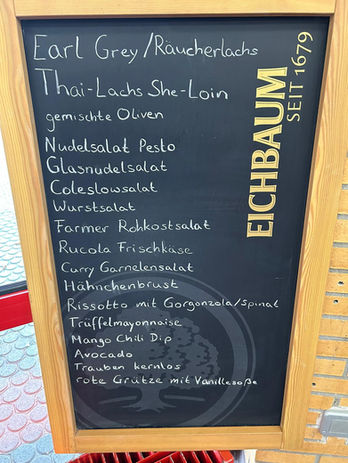 Earl Grey/Räucherlachs
Thai-Lachs She-Loin
gemischte Oliven
Nudelsalat Pesto
Glasnudelsalat
Coleslowsalat
Wurstsalat
Farmer Rohkostsalat
Rucola Frischkäse
Curry Garnelensalat
Hähnchenbrust
Rissotto mit Gorgonzola/Spinat
Trüffelmayonnaise
Mango Chili Dip
Avocado
Trauben kernlos
rote Grütze mit Vanillesoße
EICHBAUM
SEIT 1679